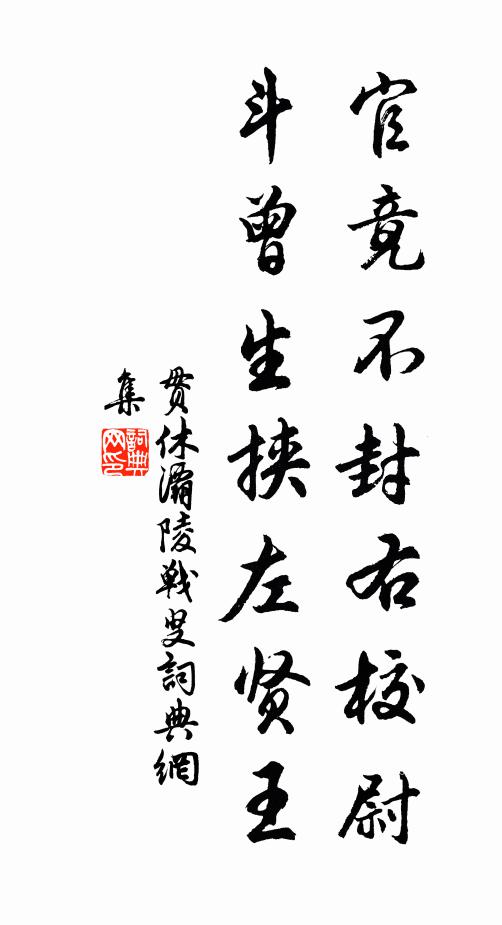 官竟不封右校尉
斗曾生挟左贤王
贯休灞陵戰叟詞典網
集
詞典网印